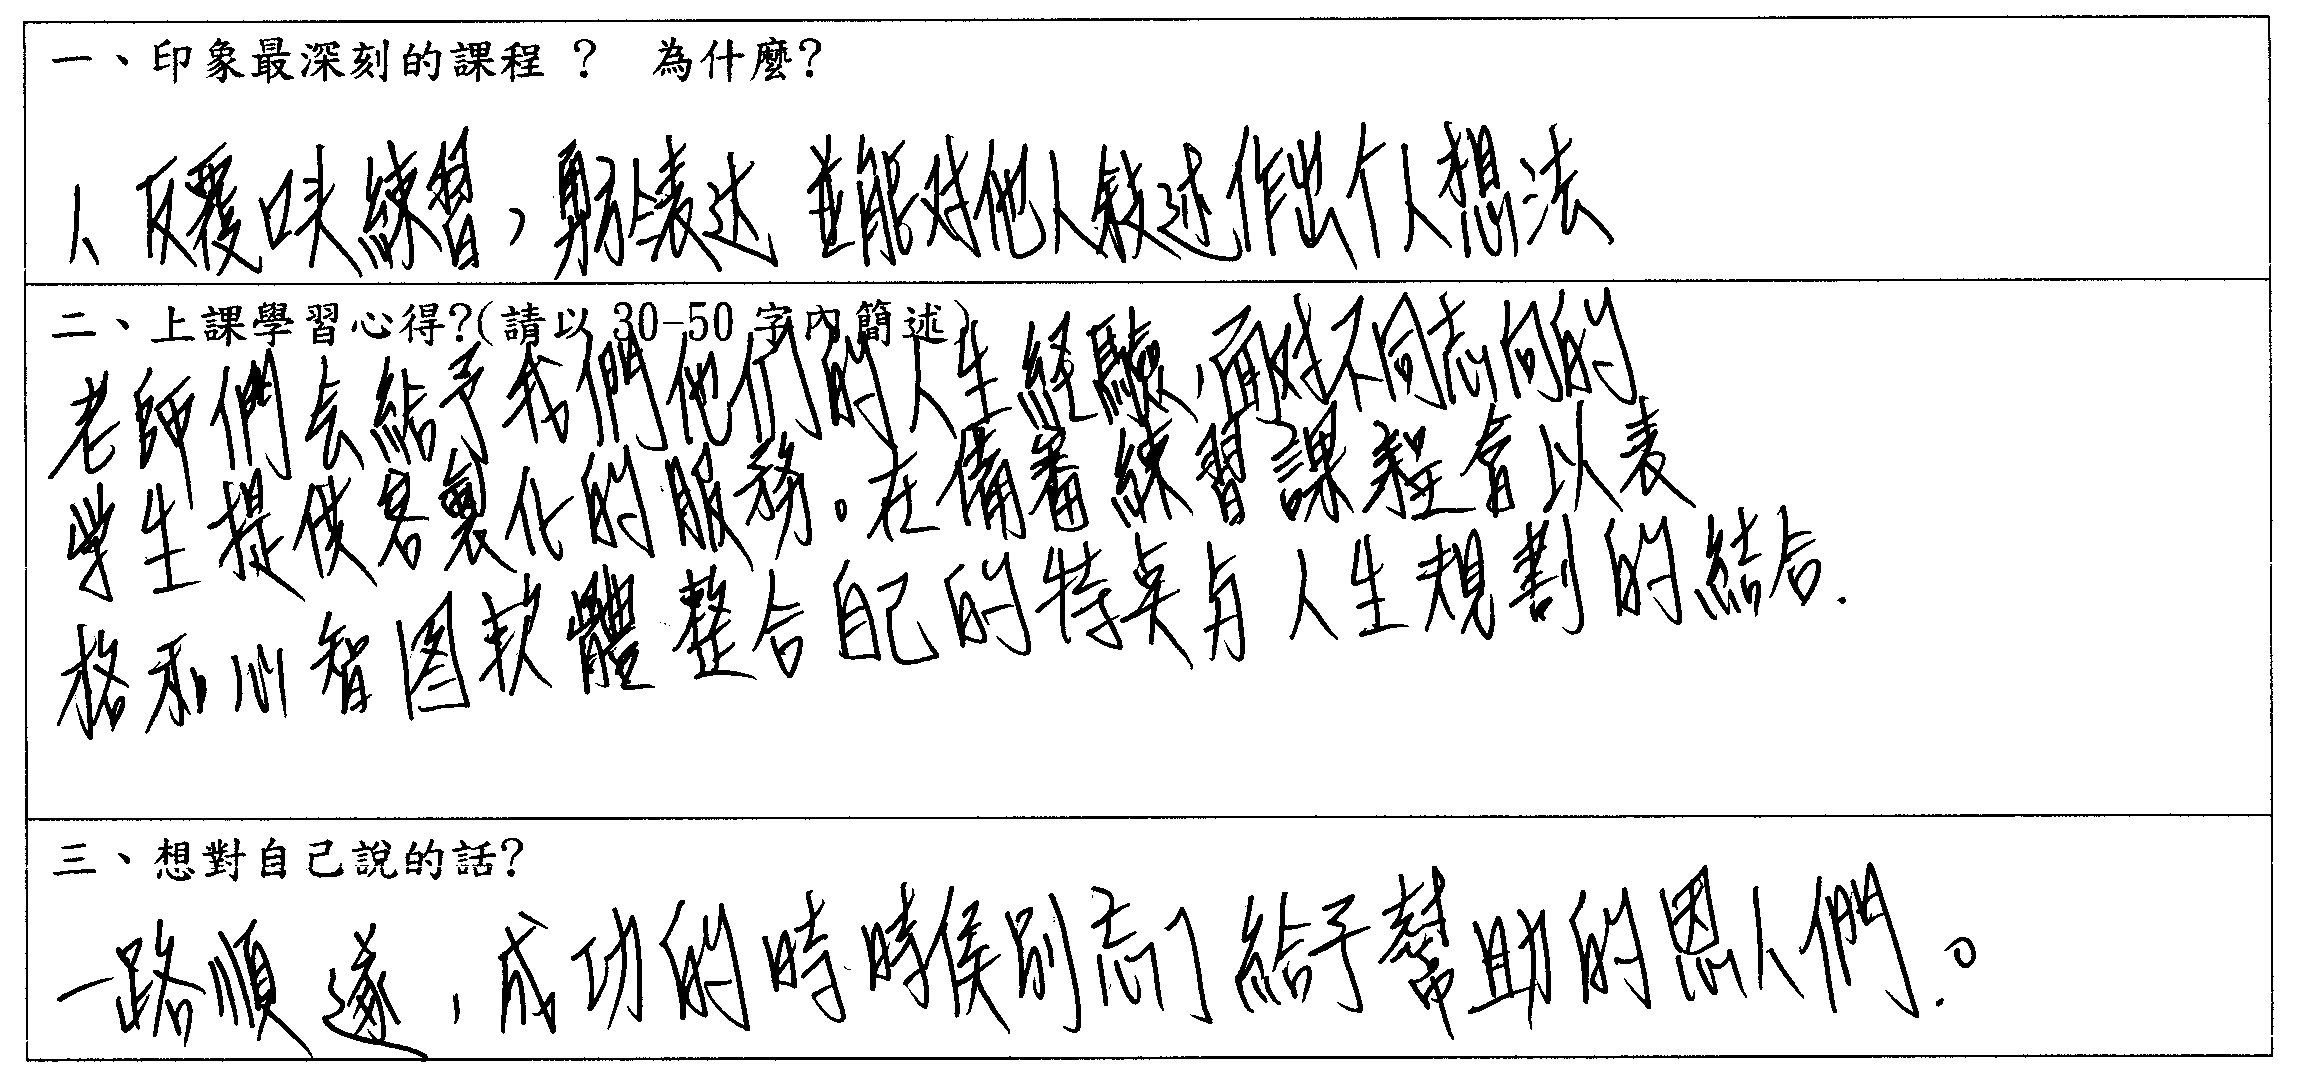 一、印象最深刻的課程 ? 為什麼?
1、反覆口夾練習，勇於表达 並能对他人敍述作出个人想法
二、上課學習心得?(請以 30-50 字內簡述)
老師們会給予我們他們的人生経驗，面对不同志向的
学生提供客製化的服務。在備審練習課程會以表
格和心智图软體整合自己的特点与人生規劃的結合.
三、想對自己說的話?
一路順遂，成功的時時侯別忘了給予幫助的恩人們。